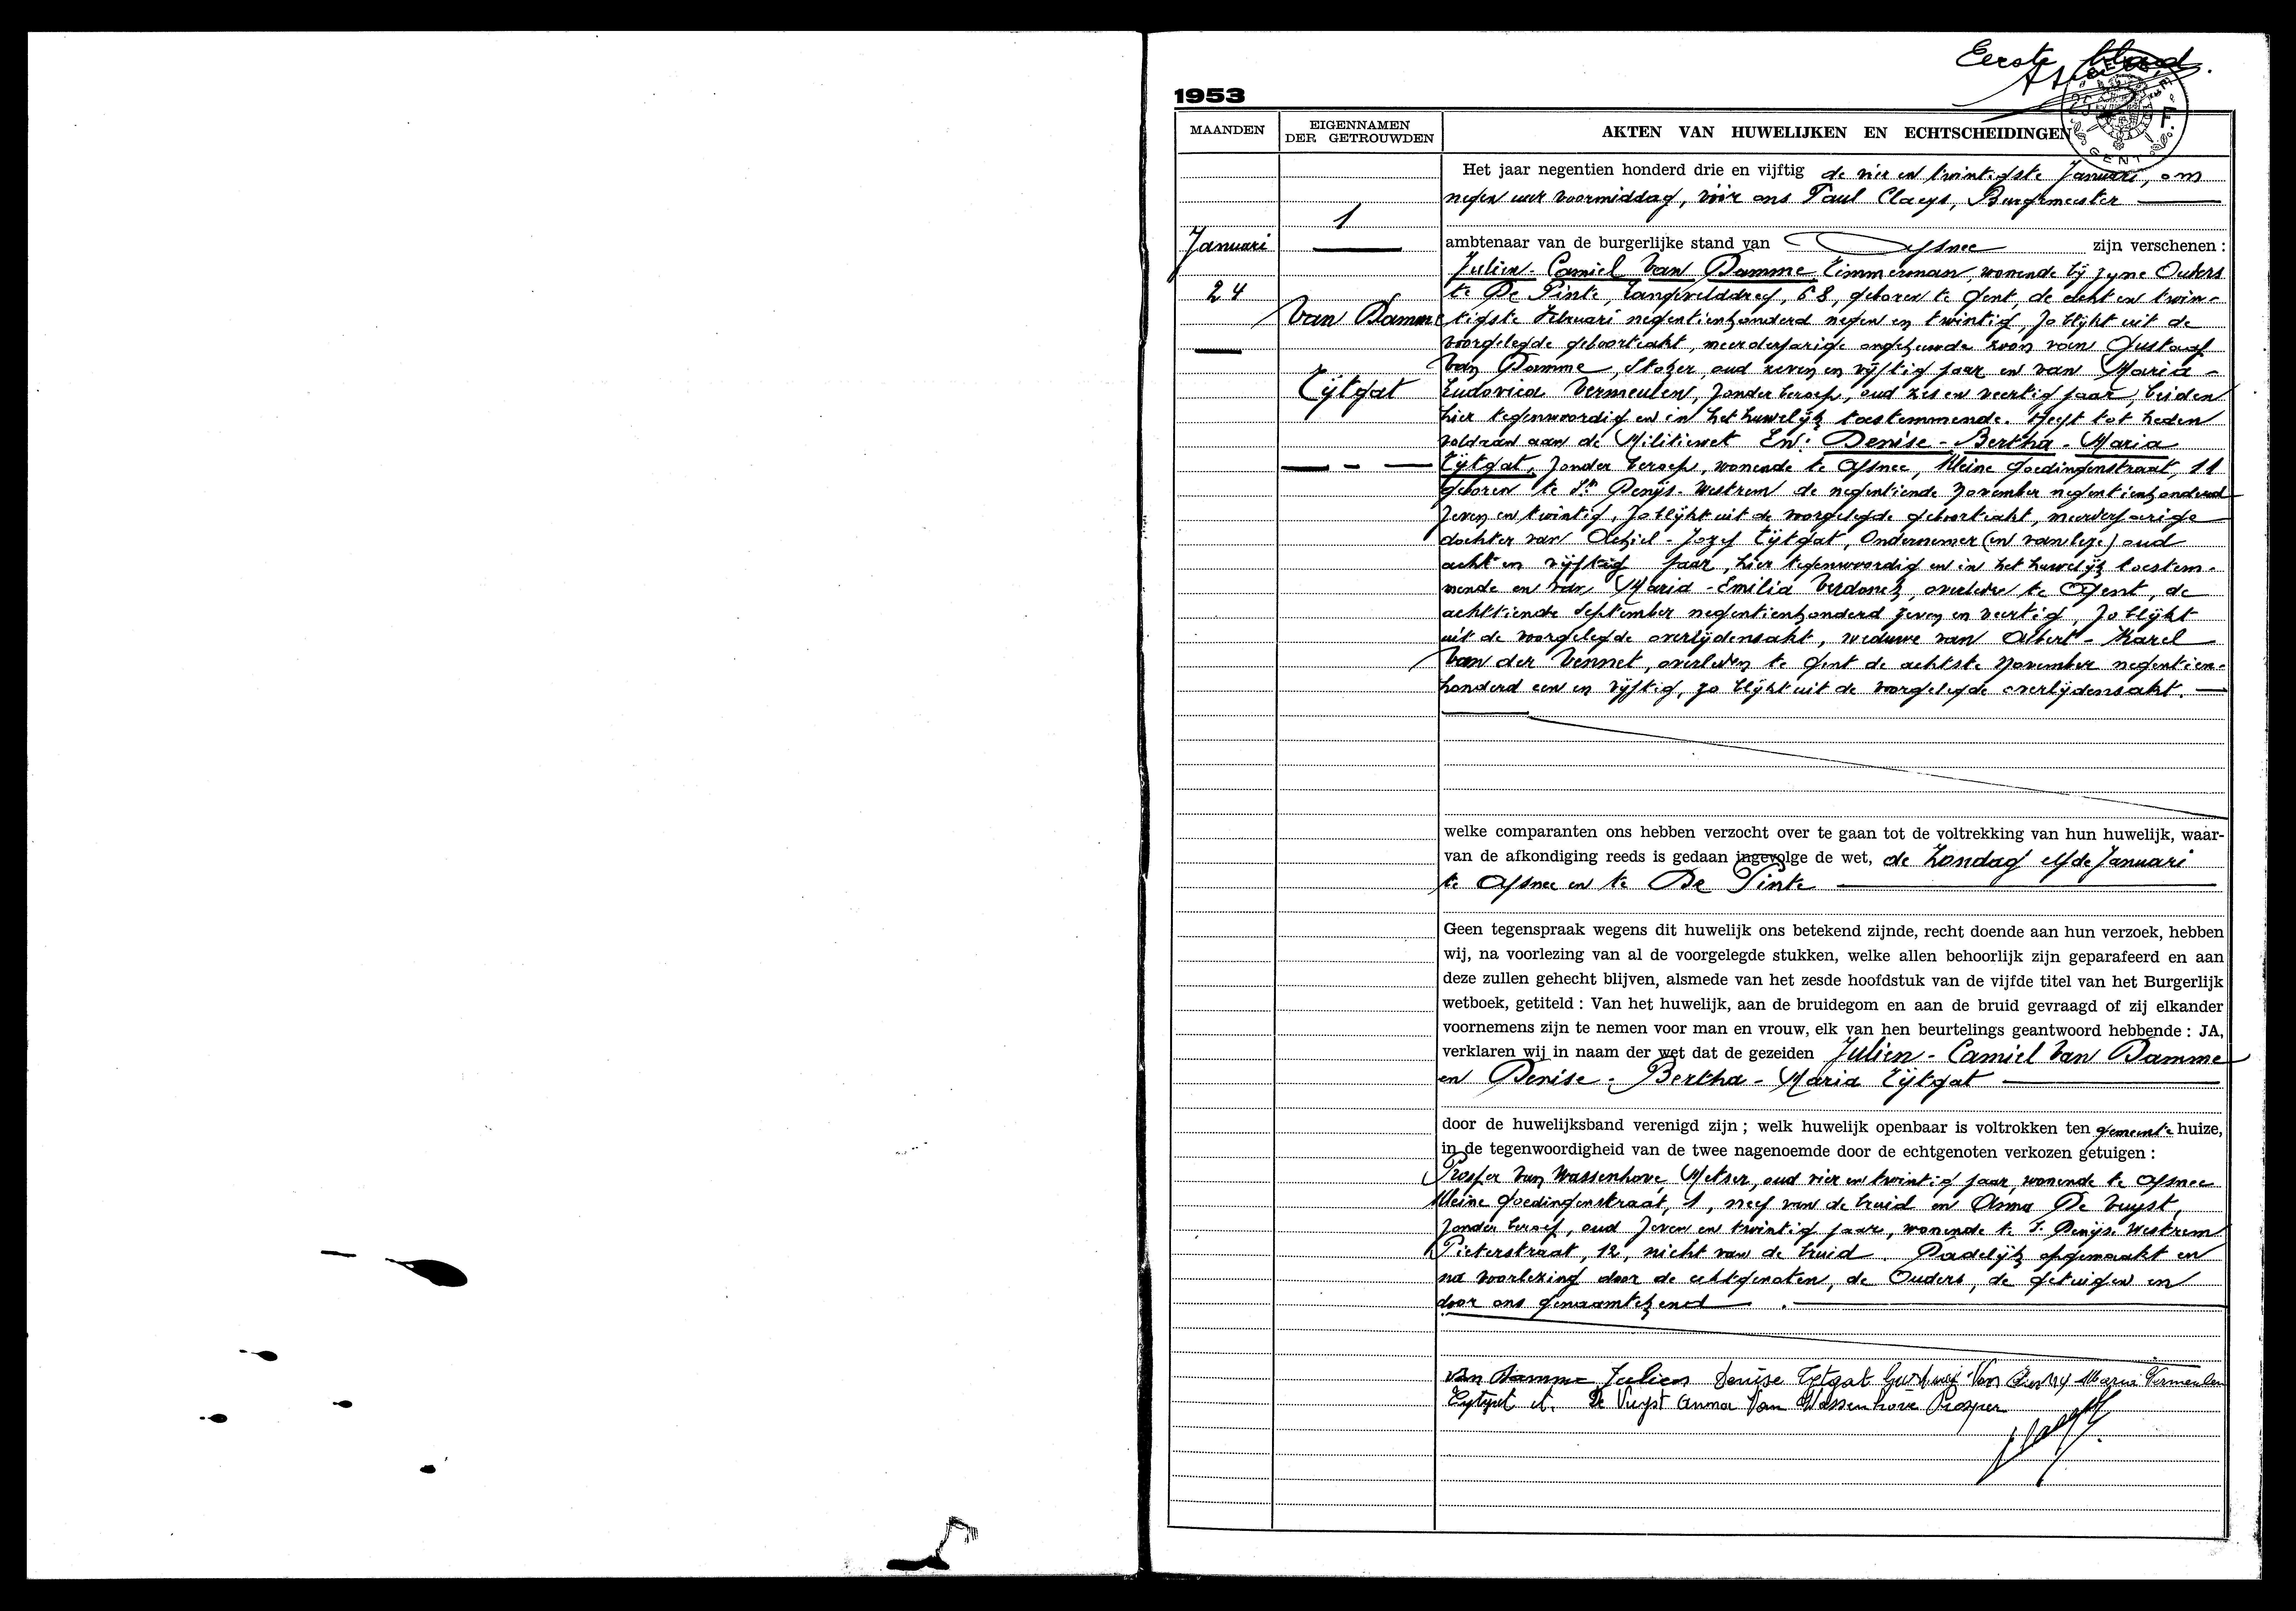 Eerste blad.
1953
MAANDEN
EIGENNAMEN
DER GETROUWDEN
AKTEN VAN HUWELIJKEN EN ECHTSCHEIDINGEN
GENT
1
Januari
24
Van Damme
Tijtgat
Het jaar negentien honderd drie en vijftig de vier en twintigste Januari, om
negen uur voormiddag, vóór ons Paul Claeys, Burgemeester
ambtenaar van de burgerlijke stand van Afsnee zijn verschenen :
Julien-Camiel Van Damme Timmerman, wonende bij zijne Ouders
te De Pinte, Langevelddreef, 68, geboren te Gent, de acht en twin-
tigste Februari negentienhonderd negen en twintig, zo blijkt uit de
voorgelegde geboorteakt, meerderjarige ongehuwde zoon van Gustaaf
Van Damme, Stoker, oud zeven en vijftig jaar en van Maria-
Ludovica Vermeulen, zonder beroep, oud zes en veertig jaar, beiden
hier tegenwoordig en in het huwelijk toestemmende. Heeft tot heden
voldaan aan de Militiewet En: Denise-Bertha-Maria
Tijtgat, zonder beroep, wonende te Afsnee, Kleine Goedingenstraat, 11
geboren te St Denijs-Westrem de negentiende November negentienhonderd
zeven en twintig, zo blijkt uit de voorgelegde geboorteakt, meerderjarige
dochter van Achiel-Jozef Tijtgat, Ondernemer oud
acht en vijftig jaar, hier tegenwoordig en in het huwelijk toestem-
mende en van Maria-Emilia Verdonck, overleden te Gent, de
achttiende September negentienhonderd zeven en veertig, zo blijkt
uit de voorgelegde overlijdensakt, weduwe van Albert-Karel
Van der Vennet, overleden te Gent de achtste November negentien-
honderd een en vijftig, zo blijkt uit de voorgelegde overlijdensakt.
welke comparanten ons hebben verzocht over te gaan tot de voltrekking van hun huwelijk, waar-
van de afkondiging reeds is gedaan ingevolge de wet, de Zondag elfde Januari
te Afsnee en te De Pinte
Geen tegenspraak wegens dit huwelijk ons betekend zijnde, recht doende aan hun verzoek, hebben
wij, na voorlezing van al de voorgelegde stukken, welke allen behoorlijk zijn geparafeerd en aan
deze zullen gehecht blijven, alsmede van het zesde hoofdstuk van de vijfde titel van het Burgerlijk
wetboek, getiteld : Van het huwelijk, aan de bruidegom en aan de bruid gevraagd of zij elkander
voornemens zijn te nemen voor man en vrouw, elk van hen beurtelings geantwoord hebbende : JA,
verklaren wij in naam der wet dat de gezeiden Julien-Camiel Van Damme
en Denise-Bertha-Maria Tijtgat
door de huwelijksband verenigd zijn ; welk huwelijk openbaar is voltrokken ten gemeente huize,
in de tegenwoordigheid van de twee nagenoemde door de echtgenoten verkozen getuigen :
Prosper Van Wassenhove, Metser, oud vier en twintig jaar, wonende te Afsnee
Kleine Goedingenstraat, 1, neef van de bruid en Anna De Vuyst,
zonder beroep, oud zeven en twintig jaar, wonende te S. Denijs-Westrem
Pieterstraat, 12, nicht van de bruid. Dadelijk opgemaakt en
na voorlezing door de echtgenoten, de Ouders, de getuigen en
door ons genaamtekend.
Van Damme Julien Denise Tytgat Gustaaf Van Maria Vermeulen
Tytgat A. De Vuyst Anna Van Wassenhove Prosper